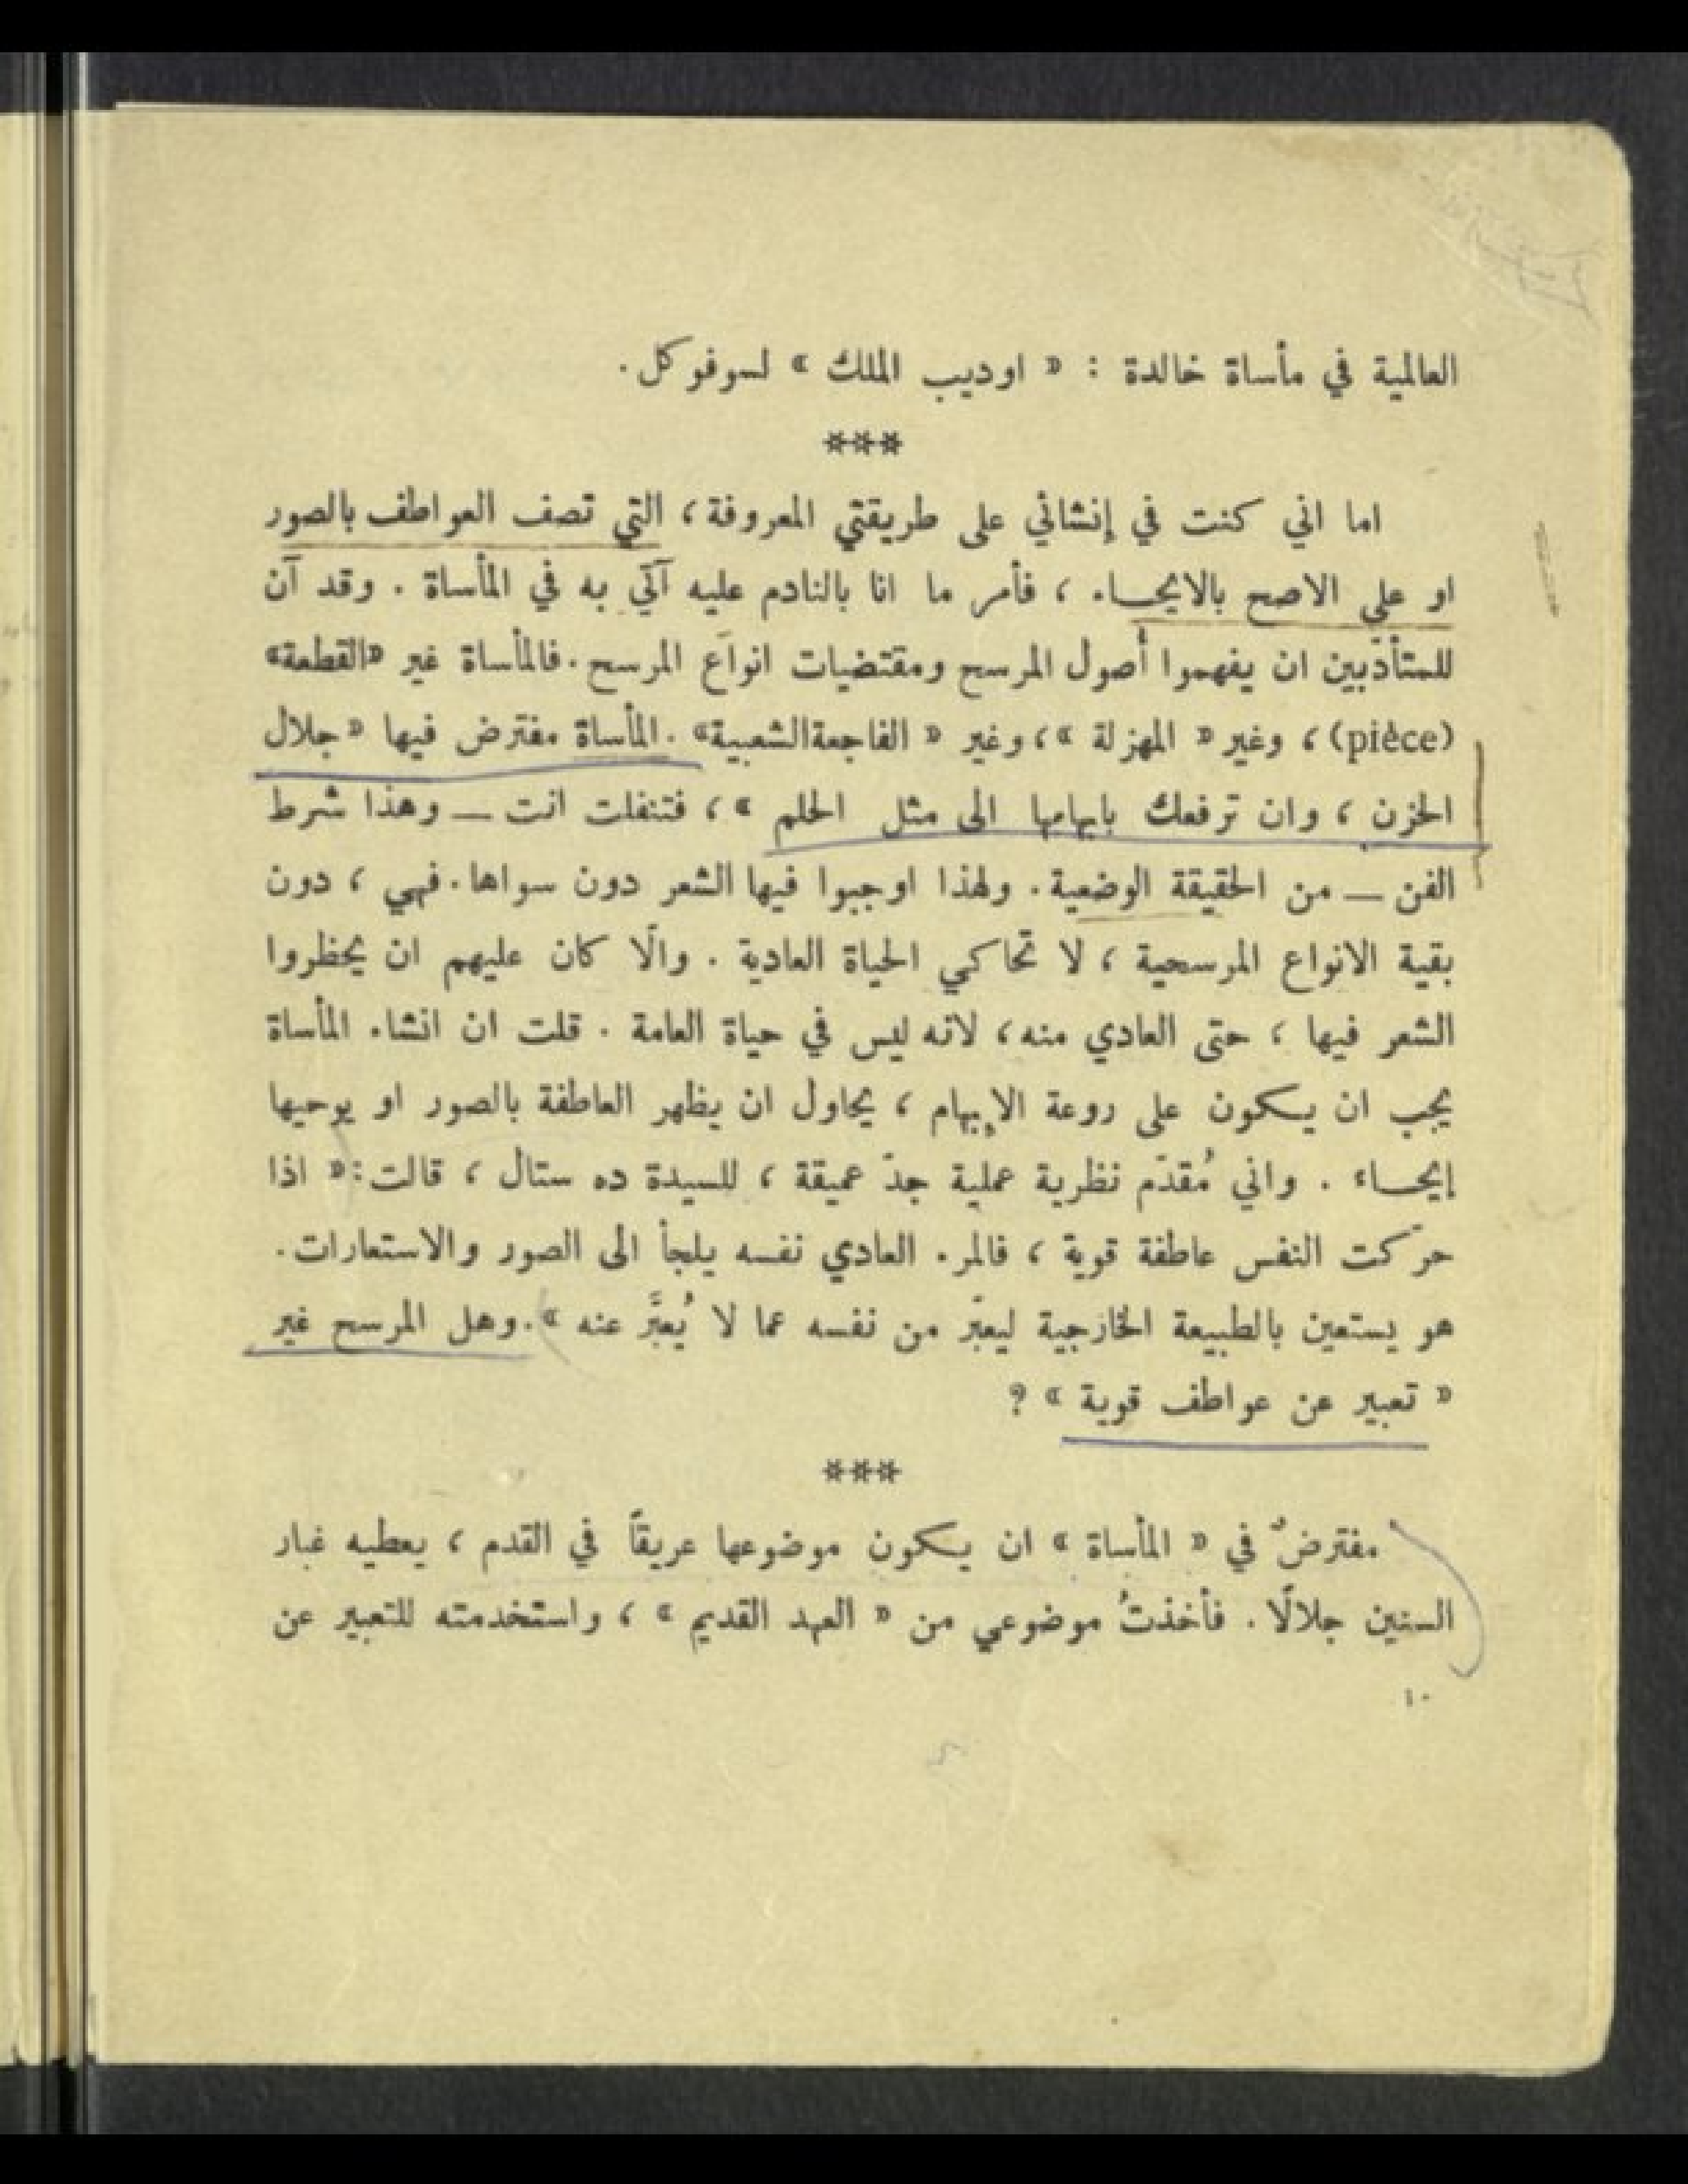 العالمية في مأساة خالدة : « اوديب الملك » لسوفوكل.
***
اما اني كنت في إنشائي على طريقتي المعروفة ، التي تصف العواطف بالصور
او على الاصح بالايحاء ، فأمر ما انا بالنادم عليه آتي به في المأساة . وقد آن
للمتأدّبين ان يفهموا أصول المرسح ومقتضيات انواع المرسح . فالمأساة غير «القطعة»
(pièce) ، وغير « المهزلة » ، وغير « الفاجعة الشعبية» . المأساة مفترض فيها « جلال
الحزن ، وان ترفعك بابهامها الى مثل الحلم » ، فتنفلت انت — وهذا شرط
الفن — من الحقيقة الوضعية . ولهذا اوجبوا فيها الشعر دون سواها . فهي ، دون
بقية الانواع المرسحية ، لا تحاكي الحياة العادية . والّا كان عليهم ان يحظروا
الشعر فيها ، حتى العادي منه ، لانه ليس في حياة العامة . قلت ان انشاء المأساة
يجب ان يكون على روعة الإبهام ، يحاول ان يظهر العاطفة بالصور او يوحيها
إيحاء . واني مُقدّم نظرية عملية جدّ عميقة ، للسيدة ده ستال ، قالت : « اذا
حرّكت النفس عاطفة قوية ، فالمرء العادي نفسه يلجأ الى الصور والاستعارات .
هو يستعين بالطبيعة الخارجية ليعبّر من نفسه عما لا يُعبَّر عنه » . وهل المرسح غير
« تعبير عن عواطف قوية » ؟
***
مفترضٌ في « المأساة » ان يكون موضوعها عريقاً في القدم ، يعطيه غبار
السنين جلالًا . فأخذتُ موضوعي من « العهد القديم » ، واستخدمته للتعبير عن
١٠